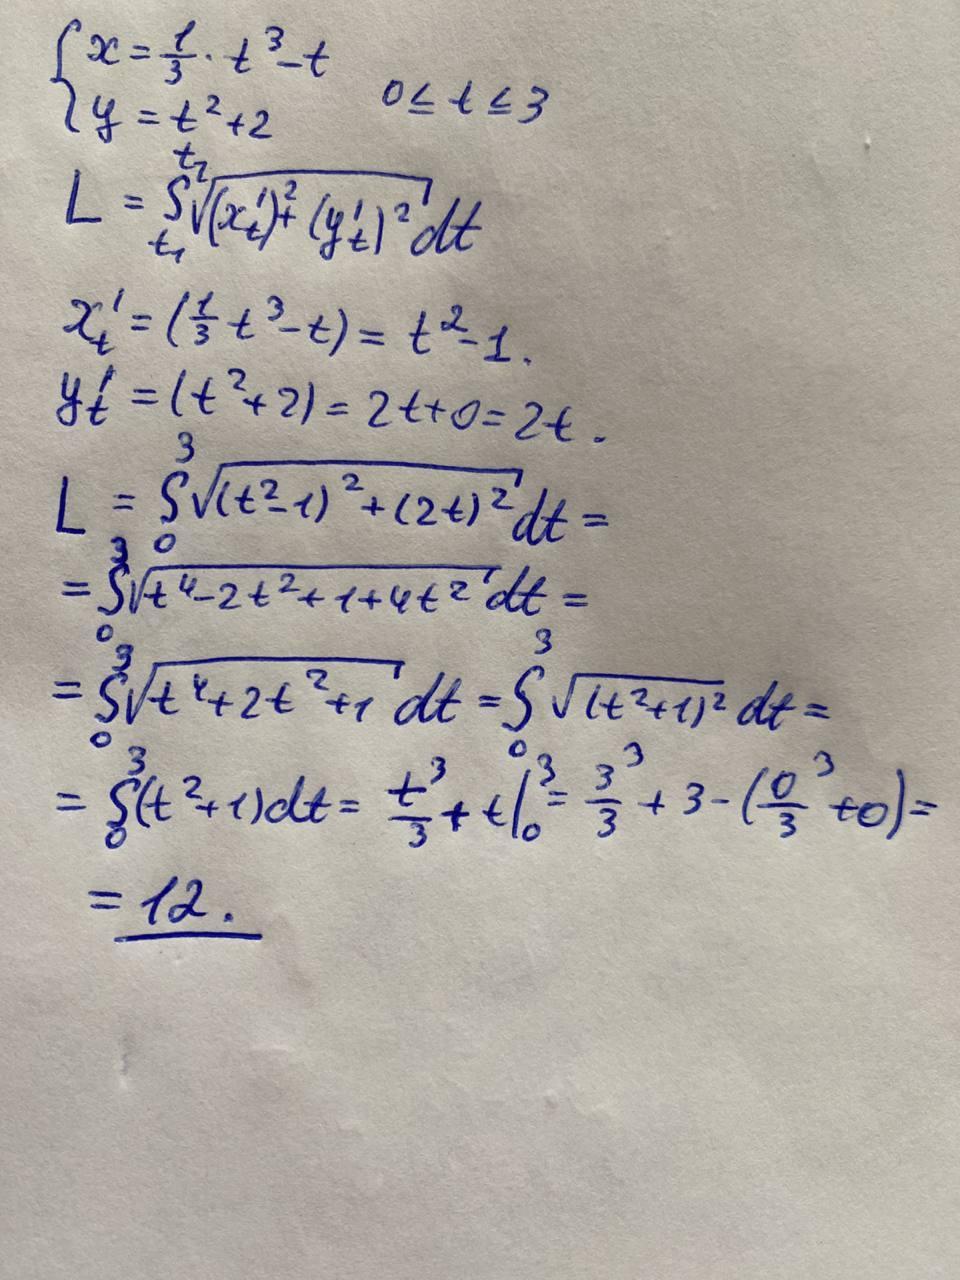 { x = 1/3 · t³ - t
y = t² + 2    0 ≤ t ≤ 3
L = ∫_{t₁}^{t₂} √((x'_t)² + (y'_t)²) dt
x'_t = (1/3 t³ - t) = t² - 1.
y'_t = (t² + 2) = 2t + 0 = 2t.
L = ∫_0^3 √((t² - 1)² + (2t)²) dt =
= ∫_0^3 √(t⁴ - 2t² + 1 + 4t²) dt =
= ∫_0^3 √(t⁴ + 2t² + 1) dt = ∫_0^3 √((t² + 1)²) dt =
= ∫_0^3 (t² + 1) dt = t³/3 + t |_0^3 = 3³/3 + 3 - (0³/3 + 0) =
= 12.